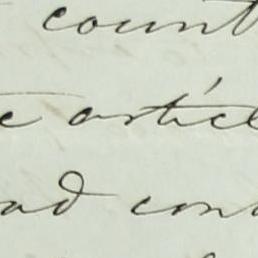 count
e articl
ad con